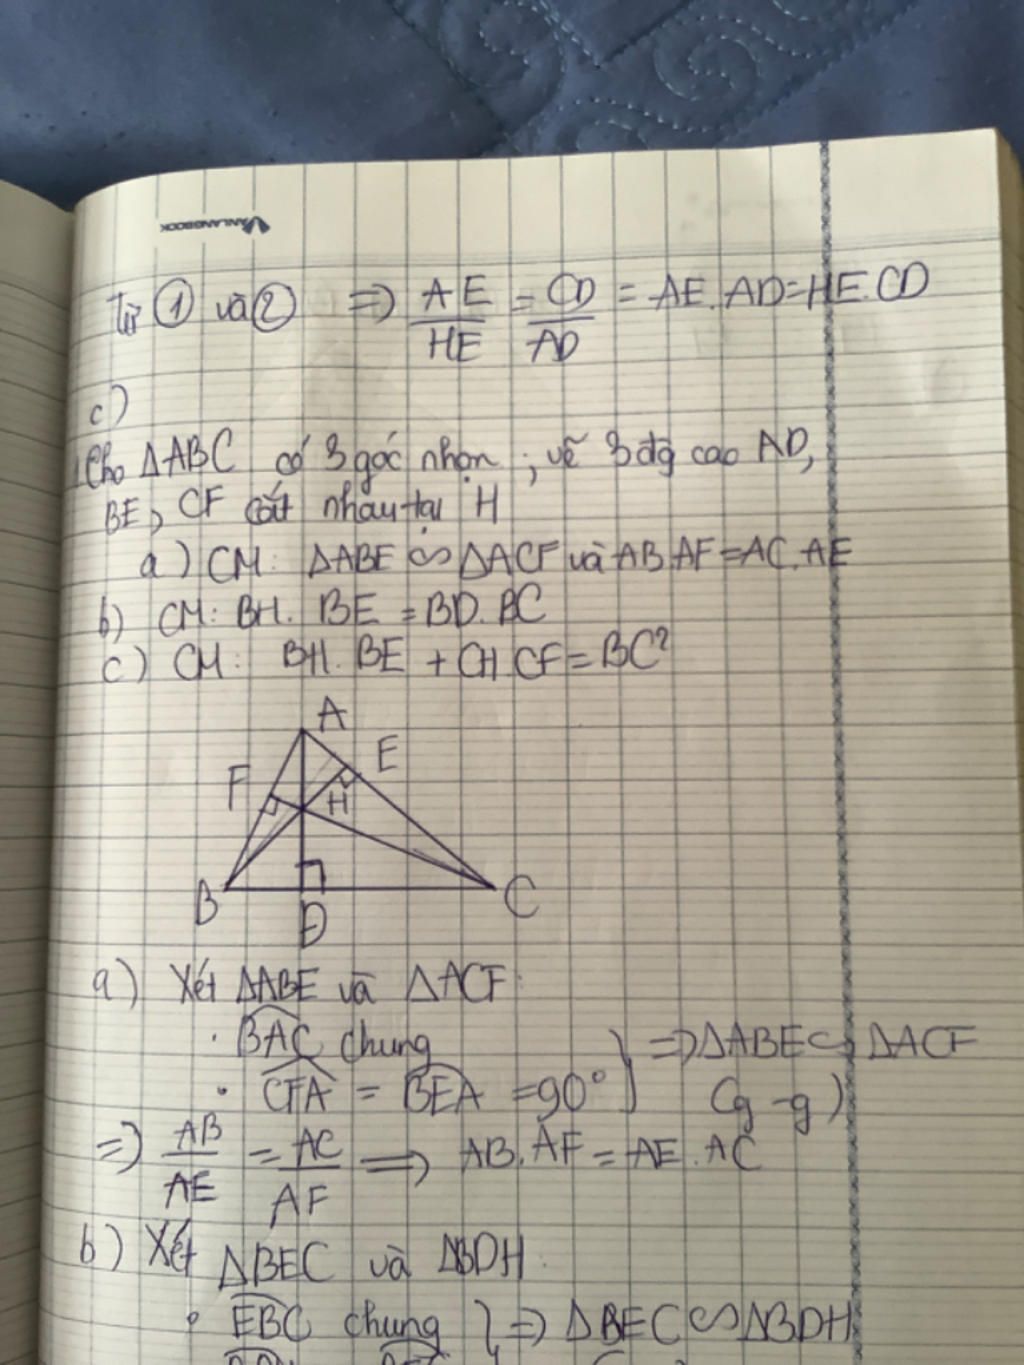 VANLANGBOOK
Từ ① và ② => AE/HE = CD/AD = AE.AD=HE.CD
c)
Cho ΔABC có 3 góc nhọn, vẽ 3 đg cao AD,
BE, CF cắt nhau tại H
a) CM: ΔABE ∽ ΔACF và AB.AF=AC.AE
b) CM: BH.BE=BD.BC
c) CM: BH.BE+CH.CF=BC²
A
E
F
H
B
C
D
a) Xét ΔABE và ΔACF:
• BAC chung } => ΔABE ∽ ΔACF
• CFA = BEA = 90° (g-g)
=> AB/AE = AC/AF => AB.AF=AE.AC
b) Xét ΔBEC và ΔBDH:
• EBC chung } => ΔBEC ∽ ΔBDH